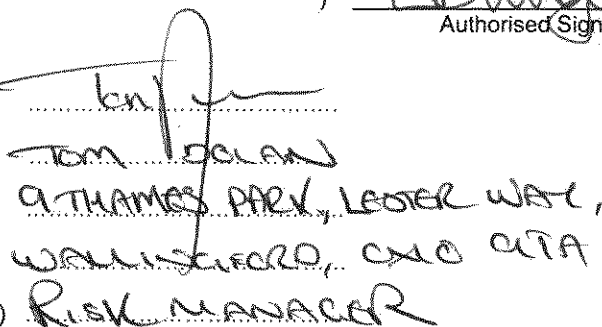 Authorised Sign
TOM DOLAN
9 THAMES PARK, LESTER WAY,
WALLINGFORD, OX10 9TA
) RISK MANAGER